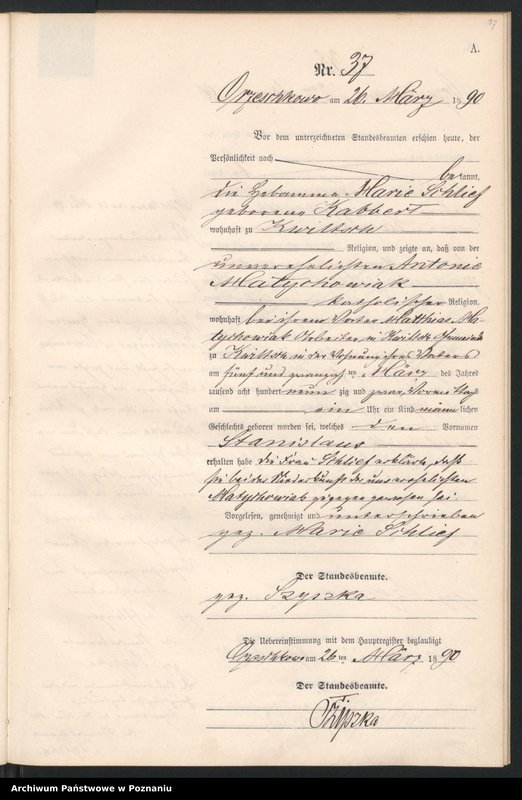 37
A.
Nr. 37
Orzeschkowo am 26. März 1890
Vor dem unterzeichneten Standesbeamten erschien heute, der
Persönlichkeit nach
bekannt,
die Hebamme Marie Schlief
geborene Kabbert
wohnhaft zu Kwiltsch
Religion, und zeigte an, daß von der
unverehelichten Antonie
Matychowiak
katholischer Religion,
wohnhaft bei ihrem Vater Matthias Ma-
tychowiak Arbeiter in Kwiltsch
zu Kwiltsch in der Wohnung ihres Vaters
am fünf und zwanzigsten März des Jahres
tausend acht hundert neunzig und zwar Vormittags
um ein Uhr ein Kind männlichen
Geschlechts geboren worden sei, welches den Vornamen
Stanislaus
erhalten habe die Frau Schlief erklärte, daß
sie bei der Niederkunft der unverehelichten
Matychowiak zugegen gewesen sei
Vorgelesen, genehmigt und unterschrieben
gez. Marie Schlief
Der Standesbeamte.
gez. Szyszka
Die Uebereinstimmung mit dem Hauptregister beglaubigt
Orzeschkowo am 26ten März 1890
Der Standesbeamte.
Szyszka
Archiwum Państwowe w Poznaniu